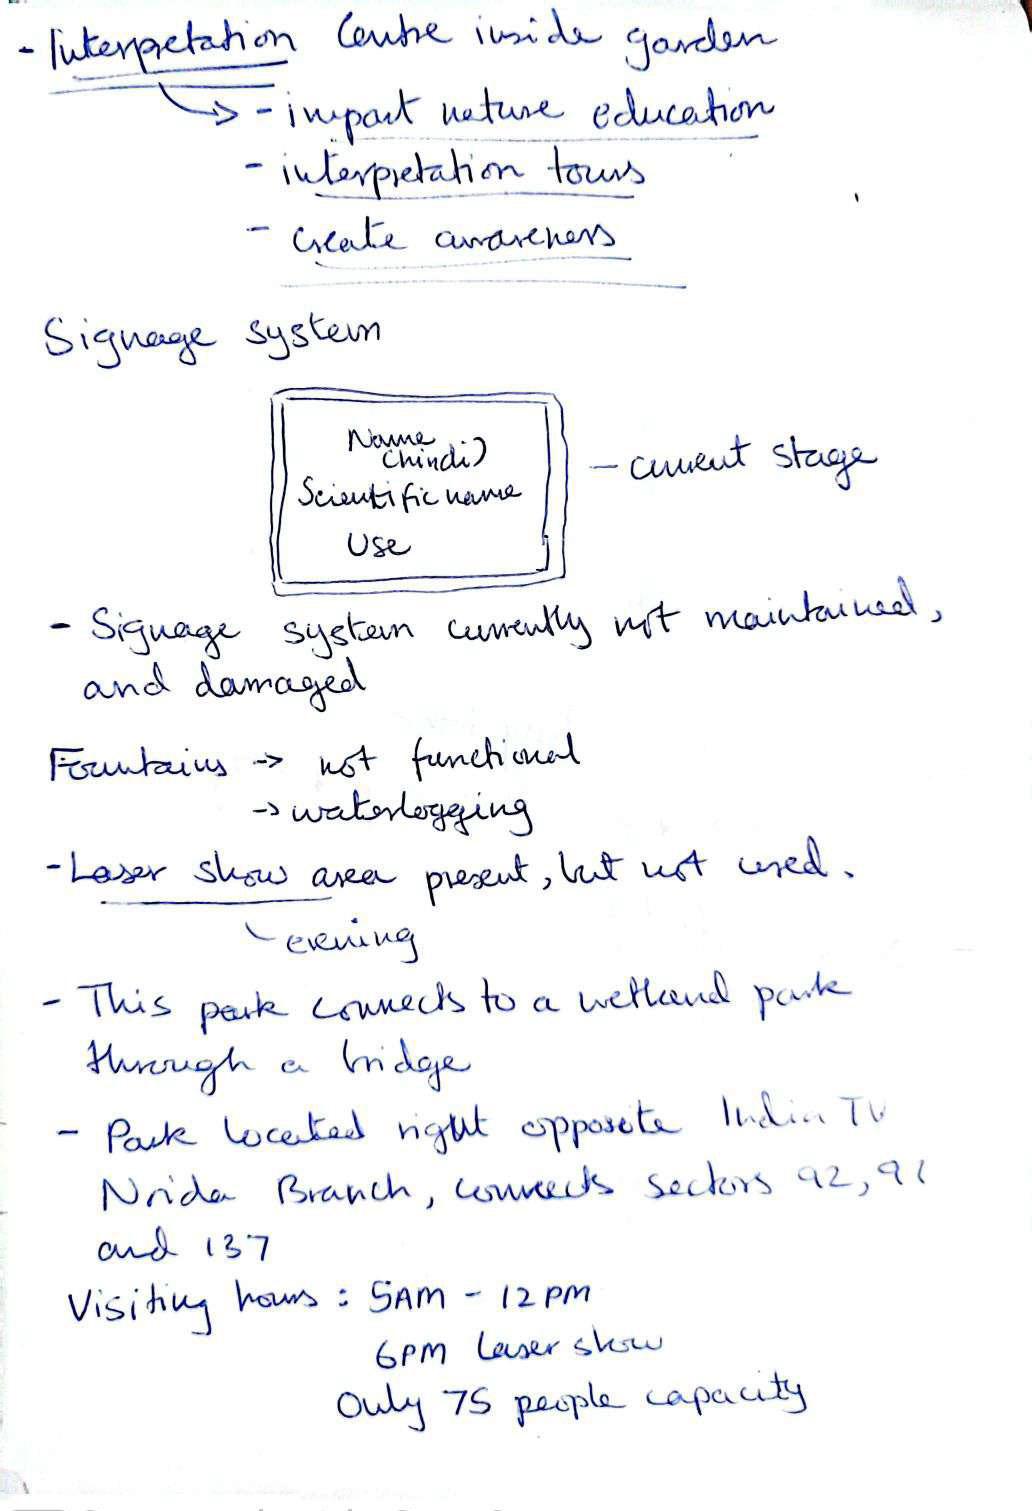 - Interpretation Centre inside garden
→ - impart nature education
- interpretation tours
- create awareness
Signage system
Name
(hindi)
Scientific name
Use
- current stage
- Signage system currently not maintained,
and damaged
Fountains → not functional
→ waterlogging
- Laser show area present, but not used.
evening
- This park connects to a wetland park
through a bridge
- Park located right opposite India TV
Noida Branch, connects sectors 92, 91
and 137
Visiting hours : 5AM - 12PM
6PM Laser show
Only 75 people capacity